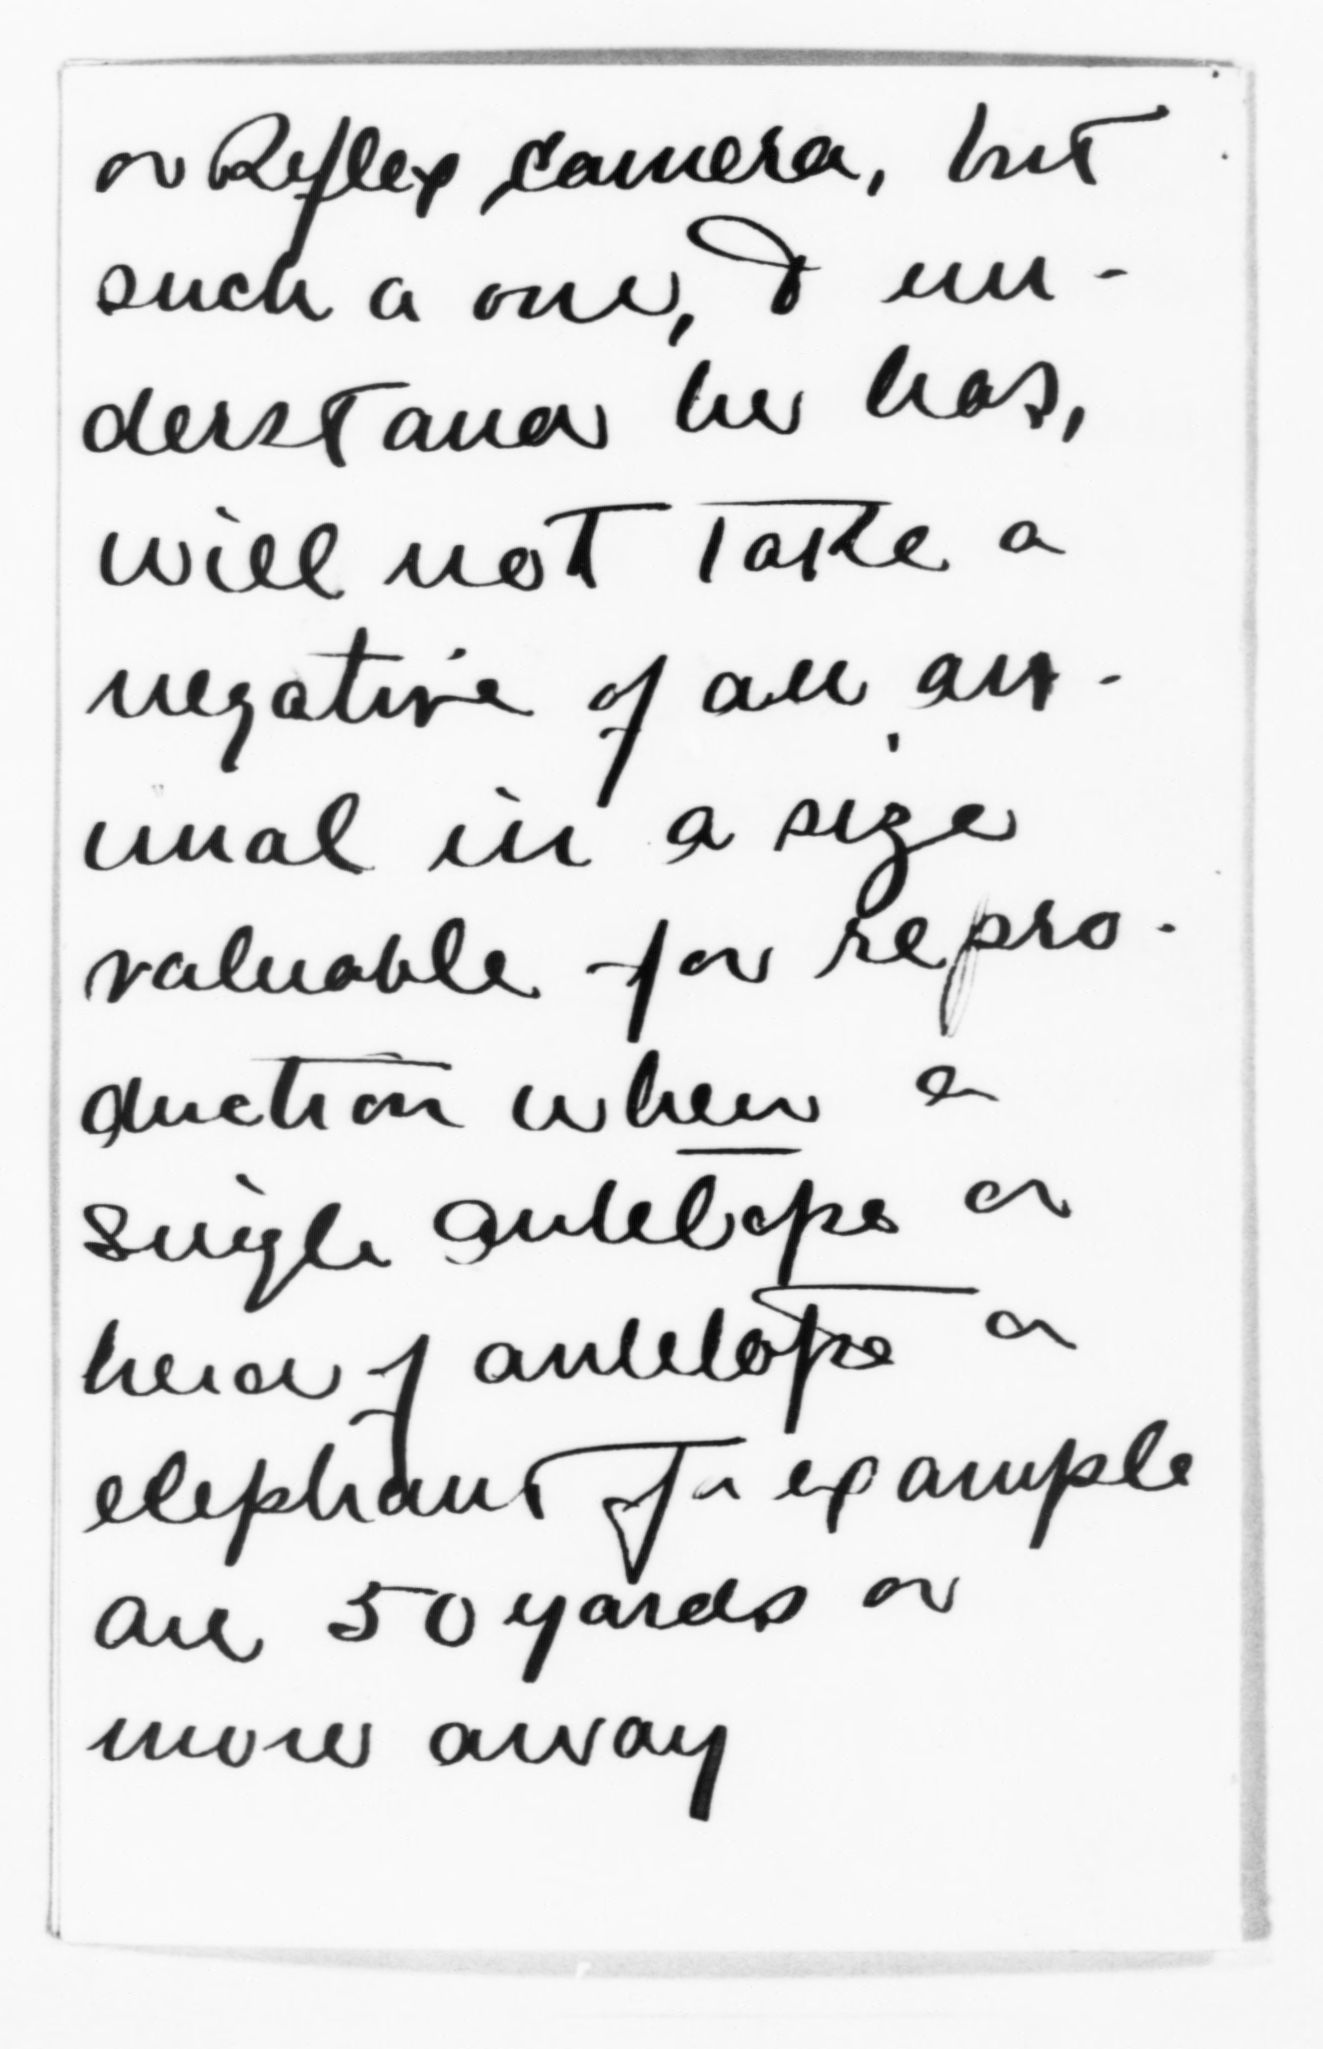 or Reflex camera, but
such a one, I un-
derstand he has,
will not take a
negative of an an-
imal in a size
valuable for repro-
duction when a
single antelope or
herd of antelope or
elephant for example
are 50 yards or
more away